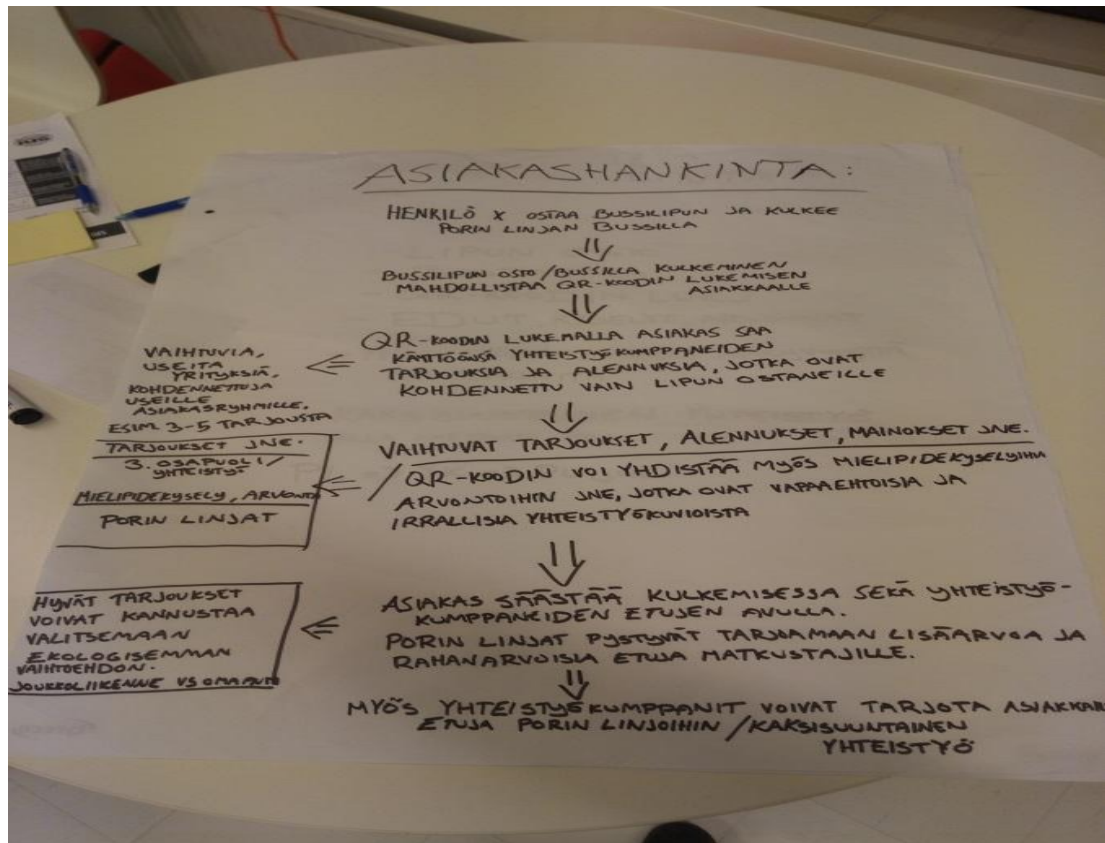 ASIAKASHANKINTA:
HENKILÖ X OSTAA BUSSILIPUN JA KULKEE
PORIN LINJAN BUSSILLA
BUSSILIPUN OSTO/BUSSILLA KULKEMINEN
MAHDOLLISTAA QR-KOODIN LUKEMISEN
ASIAKKAALLE
QR-KOODIN LUKEMALLA ASIAKAS SAA
KÄYTTÖÖNSÄ YHTEISTYÖKUMPPANEIDEN
TARJOUKSIA JA ALENNUKSIA, JOTKA OVAT
KOHDENNETTU VAIN LIPUN OSTANEILLE
VAIHTUVIA,
USEITA
YRITYKSIÄ,
KOHDENNETTUJA
USEILLE
ASIAKASRYHMILLE,
ESIM 3-5 TARJOUSTA
VAIHTUVAT TARJOUKSET, ALENNUKSET, MAINOKSET JNE.
QR-KOODIN VOI YHDISTÄÄ MYÖS MIELIPIDEKYSELYIHIN
ARVONTOIHIN JNE, JOTKA OVAT VAPAAEHTOISIA JA
IRRALLISIA YHTEISTYÖKUVIOISTA
TARJOUKSET JNE.
3. OSAPUOLI/
YHTEISTYÖ
MIELIPIDEKYSELY, ARVONTA
PORIN LINJAT
ASIAKAS SÄÄSTÄÄ KULKEMISESSA SEKÄ YHTEISTYÖ-
KUMPPANEIDEN ETUJEN AVULLA.
PORIN LINJAT PYSTYVÄT TARJOAMAAN LISÄARVOA JA
RAHANARVOISIA ETUJA MATKUSTAJILLE.
HYVÄT TARJOUKSET
VOIVAT KANNUSTAA
VALITSEMAAN
EKOLOGISEMMAN
VAIHTOEHDON.
JOUKKOLIIKENNE VS OMA AUTO
MYÖS YHTEISTYÖKUMPPANIT VOIVAT TARJOTA
ETUJA PORIN LINJOIHIN/KAKSISUUNTAINEN
YHTEISTYÖ